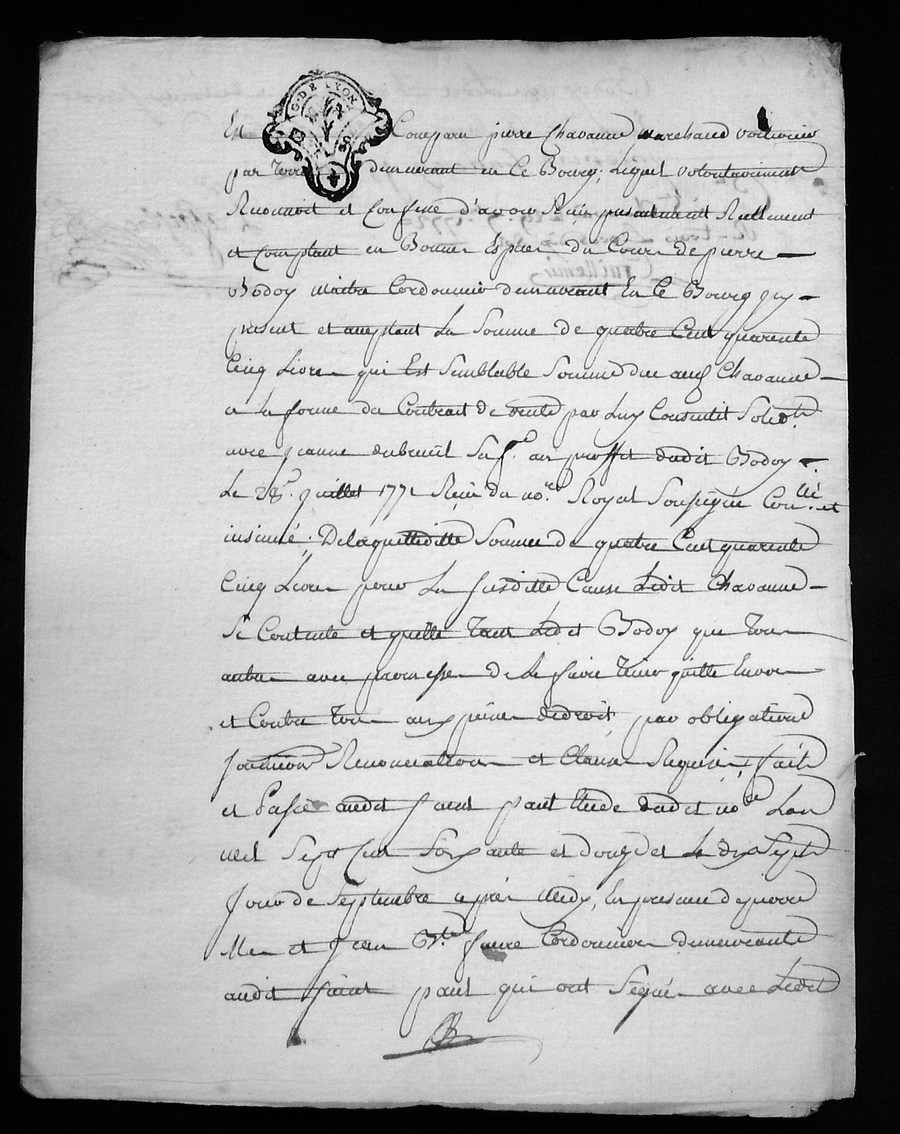 G. DE LYON
En Comparu pierre Chavanne marchand voiturier
par terre demeurant en Ce Bourg, lequel volontairement
Reconnoit et Confesse d'avoir Reçu presentement Reellement
et Comptant en Bonnes Especes du Cours de pierre
Bodoy maitre Cordonnier demeurant En Ce Bourg icy
present et acceptant La Somme de quatre Cent quarente
Cinq Livres qui Est Semblable Somme due auq Chavanne
a la forme du Contrait de vente par luy Consentit Solid.te
avec jeanne dubreuil Sa f.e au proffit dudit Bodoy
Le 28e. juillet 1771 Reçu du no.re Royal Soussigné Con.llé et
insinué; De laquelleditte Somme de quatre Cent quarente
Cinq Livres pour La susditte Cause Ledit Chavanne
Se Contente et quitte tant Ledit Bodoy que tous
autres avec promesse de Le faire tenir quitte Envers
et Contre Tous aux peines de droit, par obligations
soumissions Renonciations et Clauses Requises, fait
et Passé audit saint paul Etude dudit no.re L'an
mil Sept Cent Soixante et douze et Le dix Sept
Jour de Septembre après Midy, En presence de pierre
et Jean B.te faure Cordonniers demeurants
audit saint paul qui ont Signé avec Ledit